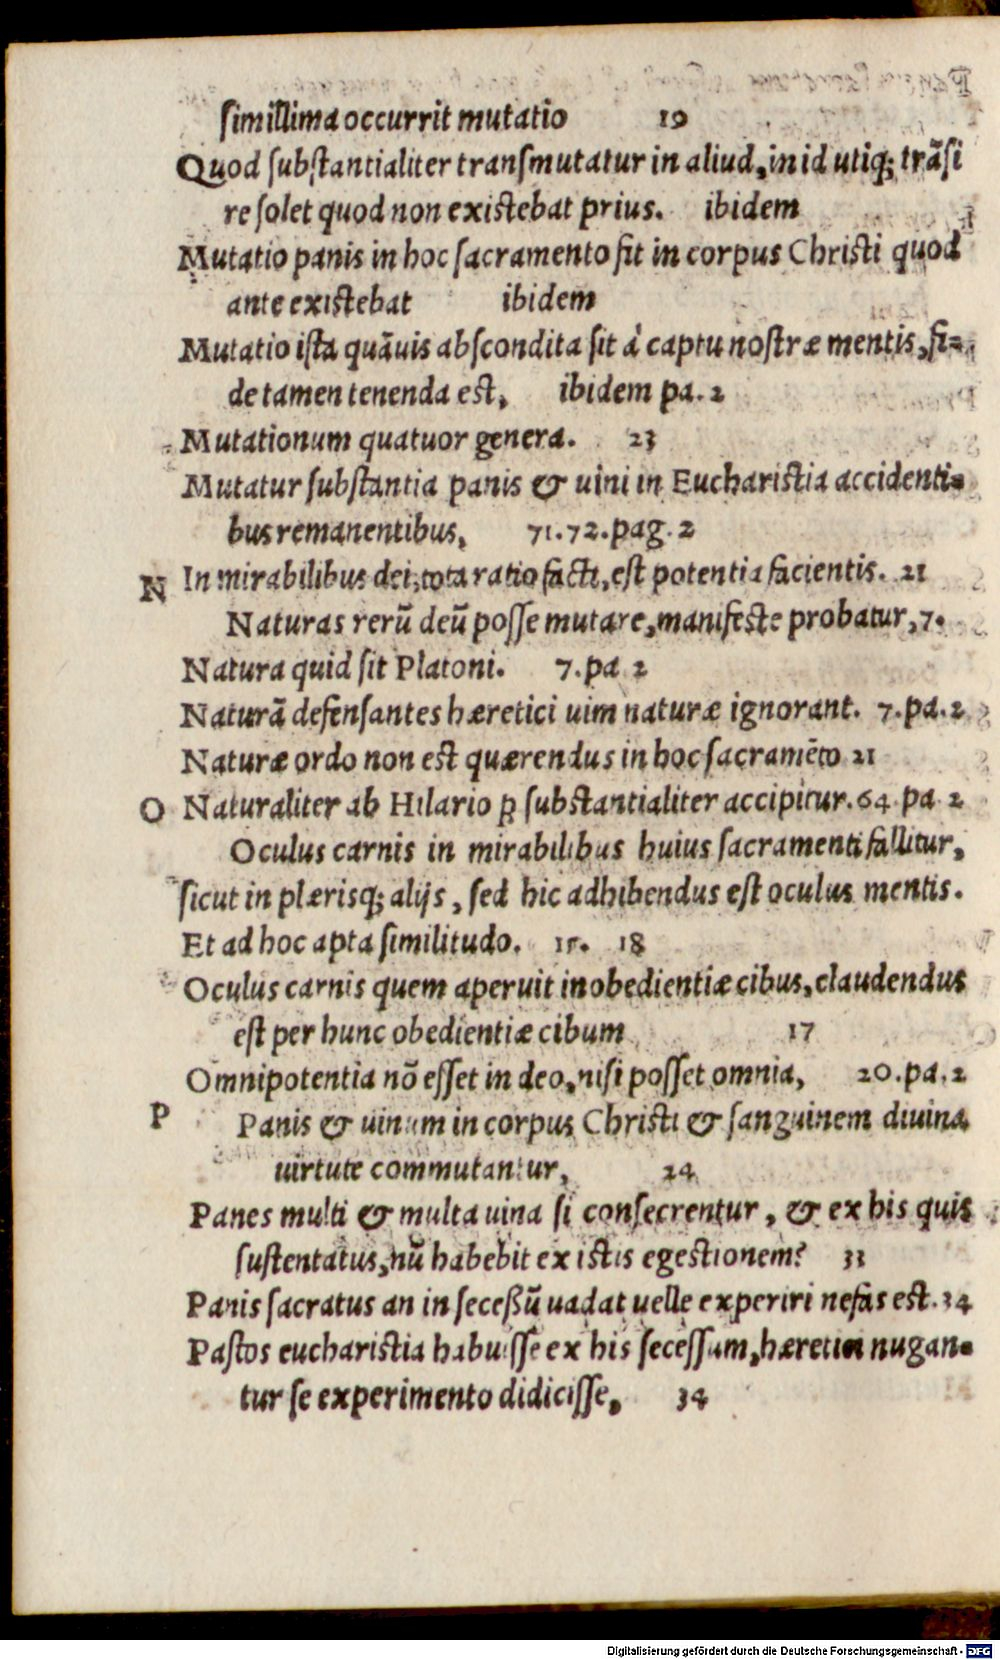 simillima occurrit mutatio 19
Quod substantialiter transmutatur in aliud, in id utiq; trãsi
re solet quod non existebat prius. ibidem
Mutatio panis in hoc sacramento fit in corpus Christi quod
ante existebat ibidem
Mutatio ista quãuis abscondita sit à captu nostræ mentis, fi=
de tamen tenenda est, ibidem pa. 2
Mutationum quatuor genera. 23
Mutatur substantia panis & uini in Eucharistia accidenti=
bus remanentibus, 71.72.pag. 2
N In mirabilibus dei, tota ratio facti, est potentia facientis. 21
Naturas rerũ deũ posse mutare, manifeste probatur, 7.
Natura quid sit Platoni. 7.pa 2
Naturã defensantes hæretici uim naturæ ignorant. 7.pa.2
Naturæ ordo non est quærendus in hoc sacramẽto 21
O Naturaliter ab Hilario ꝓ substantialiter accipitur. 64 pa 2
Oculus carnis in mirabilibus huius sacramenti fallitur,
sicut in plærisq; alijs, sed hic adhibendus est oculus mentis.
Et ad hoc apta similitudo. 15. 18
Oculus carnis quem aperuit inobedientiæ cibus, claudendus
est per hunc obedientiæ cibum 17
Omnipotentia nõ esset in deo, nisi posset omnia, 20.pa.2
P Panis & uinum in corpus Christi & sanguinem diuina
uirtute commutantur, 24
Panes multi & multa uina si consecrentur, & ex his quis
sustentatus, nũ habebit ex istis egestionem? 33
Panis sacratus an in secessũ uadat uelle experiri nefas est. 34
Pastos eucharistia habuisse ex his secessum, hæretici nugan=
tur se experimento didicisse, 34
Digitalisierung gefördert durch die Deutsche Forschungsgemeinschaft - DFG